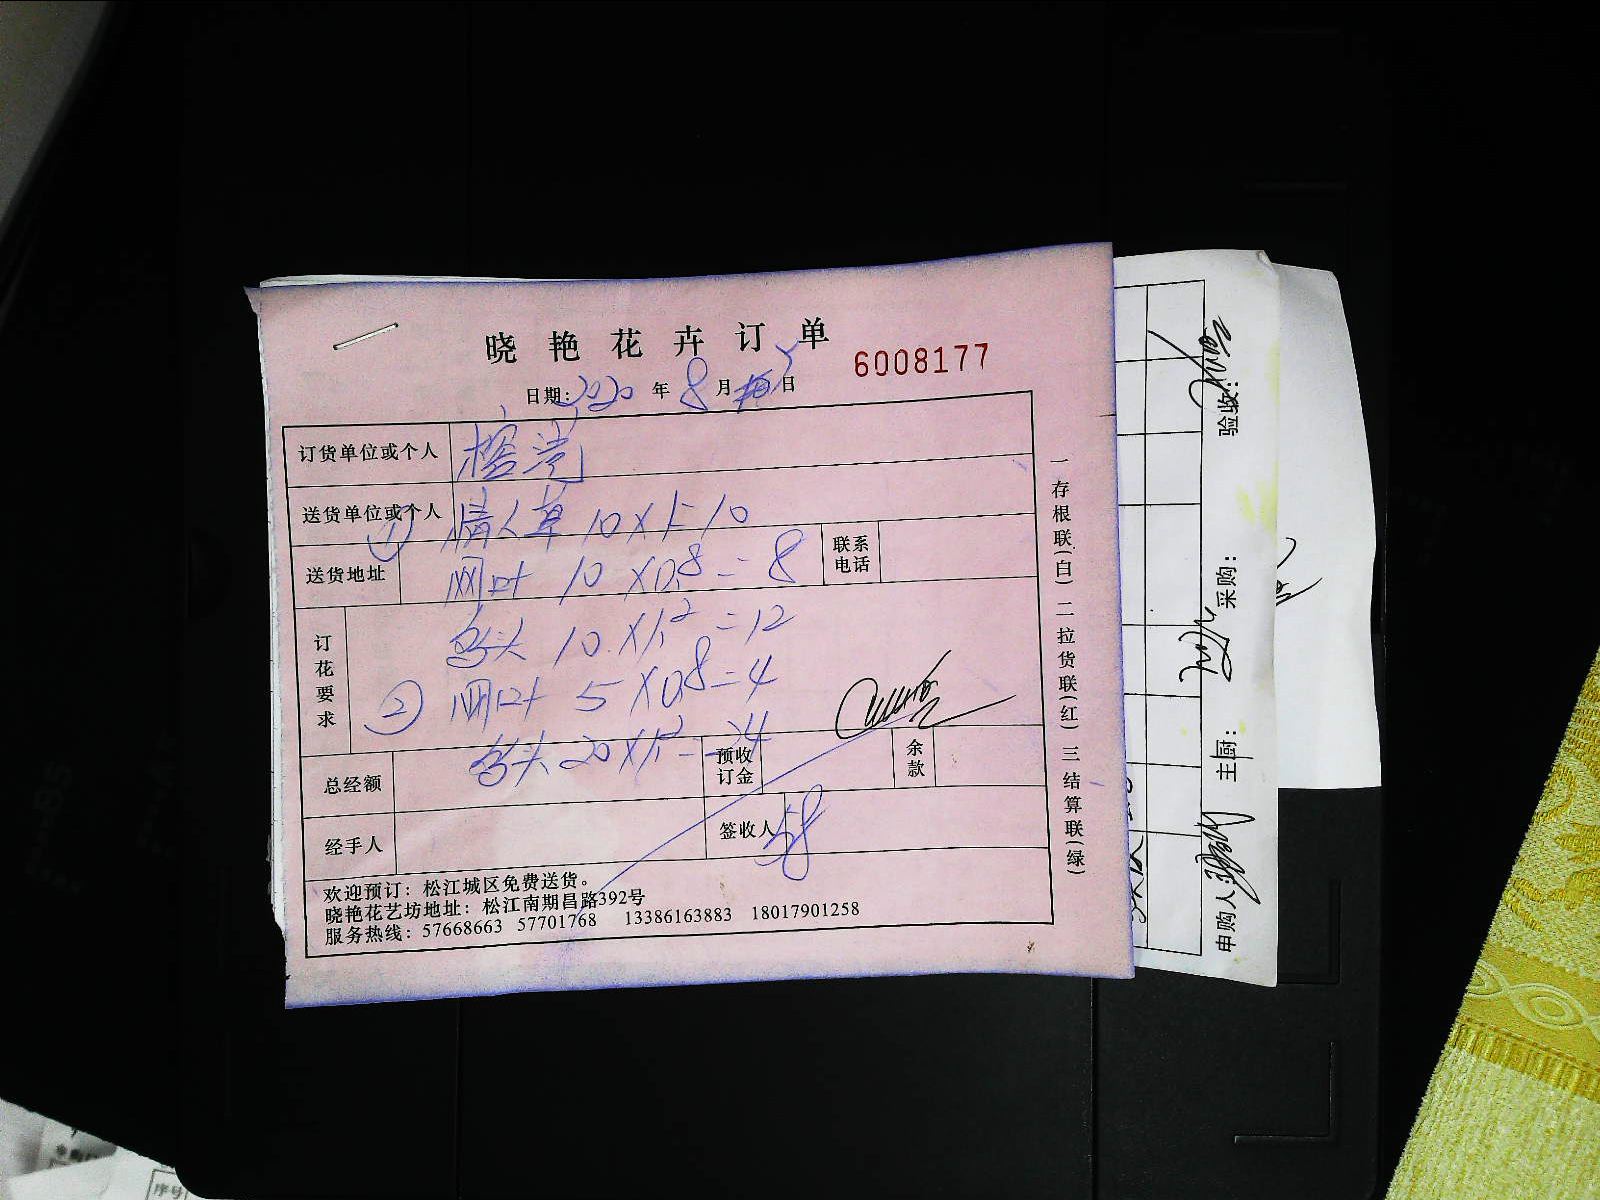 晓艳花卉订单
6008177
日期:2020年8月5日
订货单位或个人
送货单位或个人
① 情人草 10×1=10
送货地址
网叶 10×0.8=8
联系电话
订花要求
鸟头 10×1.2=12
② 网叶 5×0.8=4
鸟头 20×1.2=24
总经额
预收订金
余款
经手人
签收人
58
欢迎预订:松江城区免费送货。
晓艳花艺坊地址:松江南期昌路392号
服务热线:57668663 57701768 13386163883 18017901258
一存根联(白) 二拉货联(红) 三结算联(绿)
验收:
采购:
主厨:
申购人:
序号